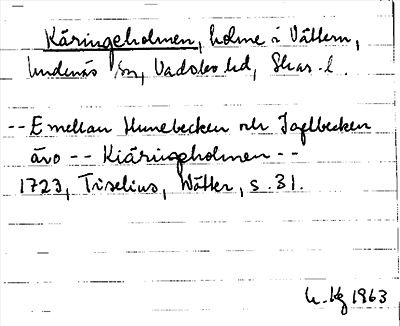 Käringeholmen, holme i Vättern,
Undenäs sn, Vadsbo hd, Skar. l.
-- Emellan Hunebecken och Jaglbecken
äro -- Kiäringeholmen --
1723, Tiselius, Wätter, s. 31.
1963